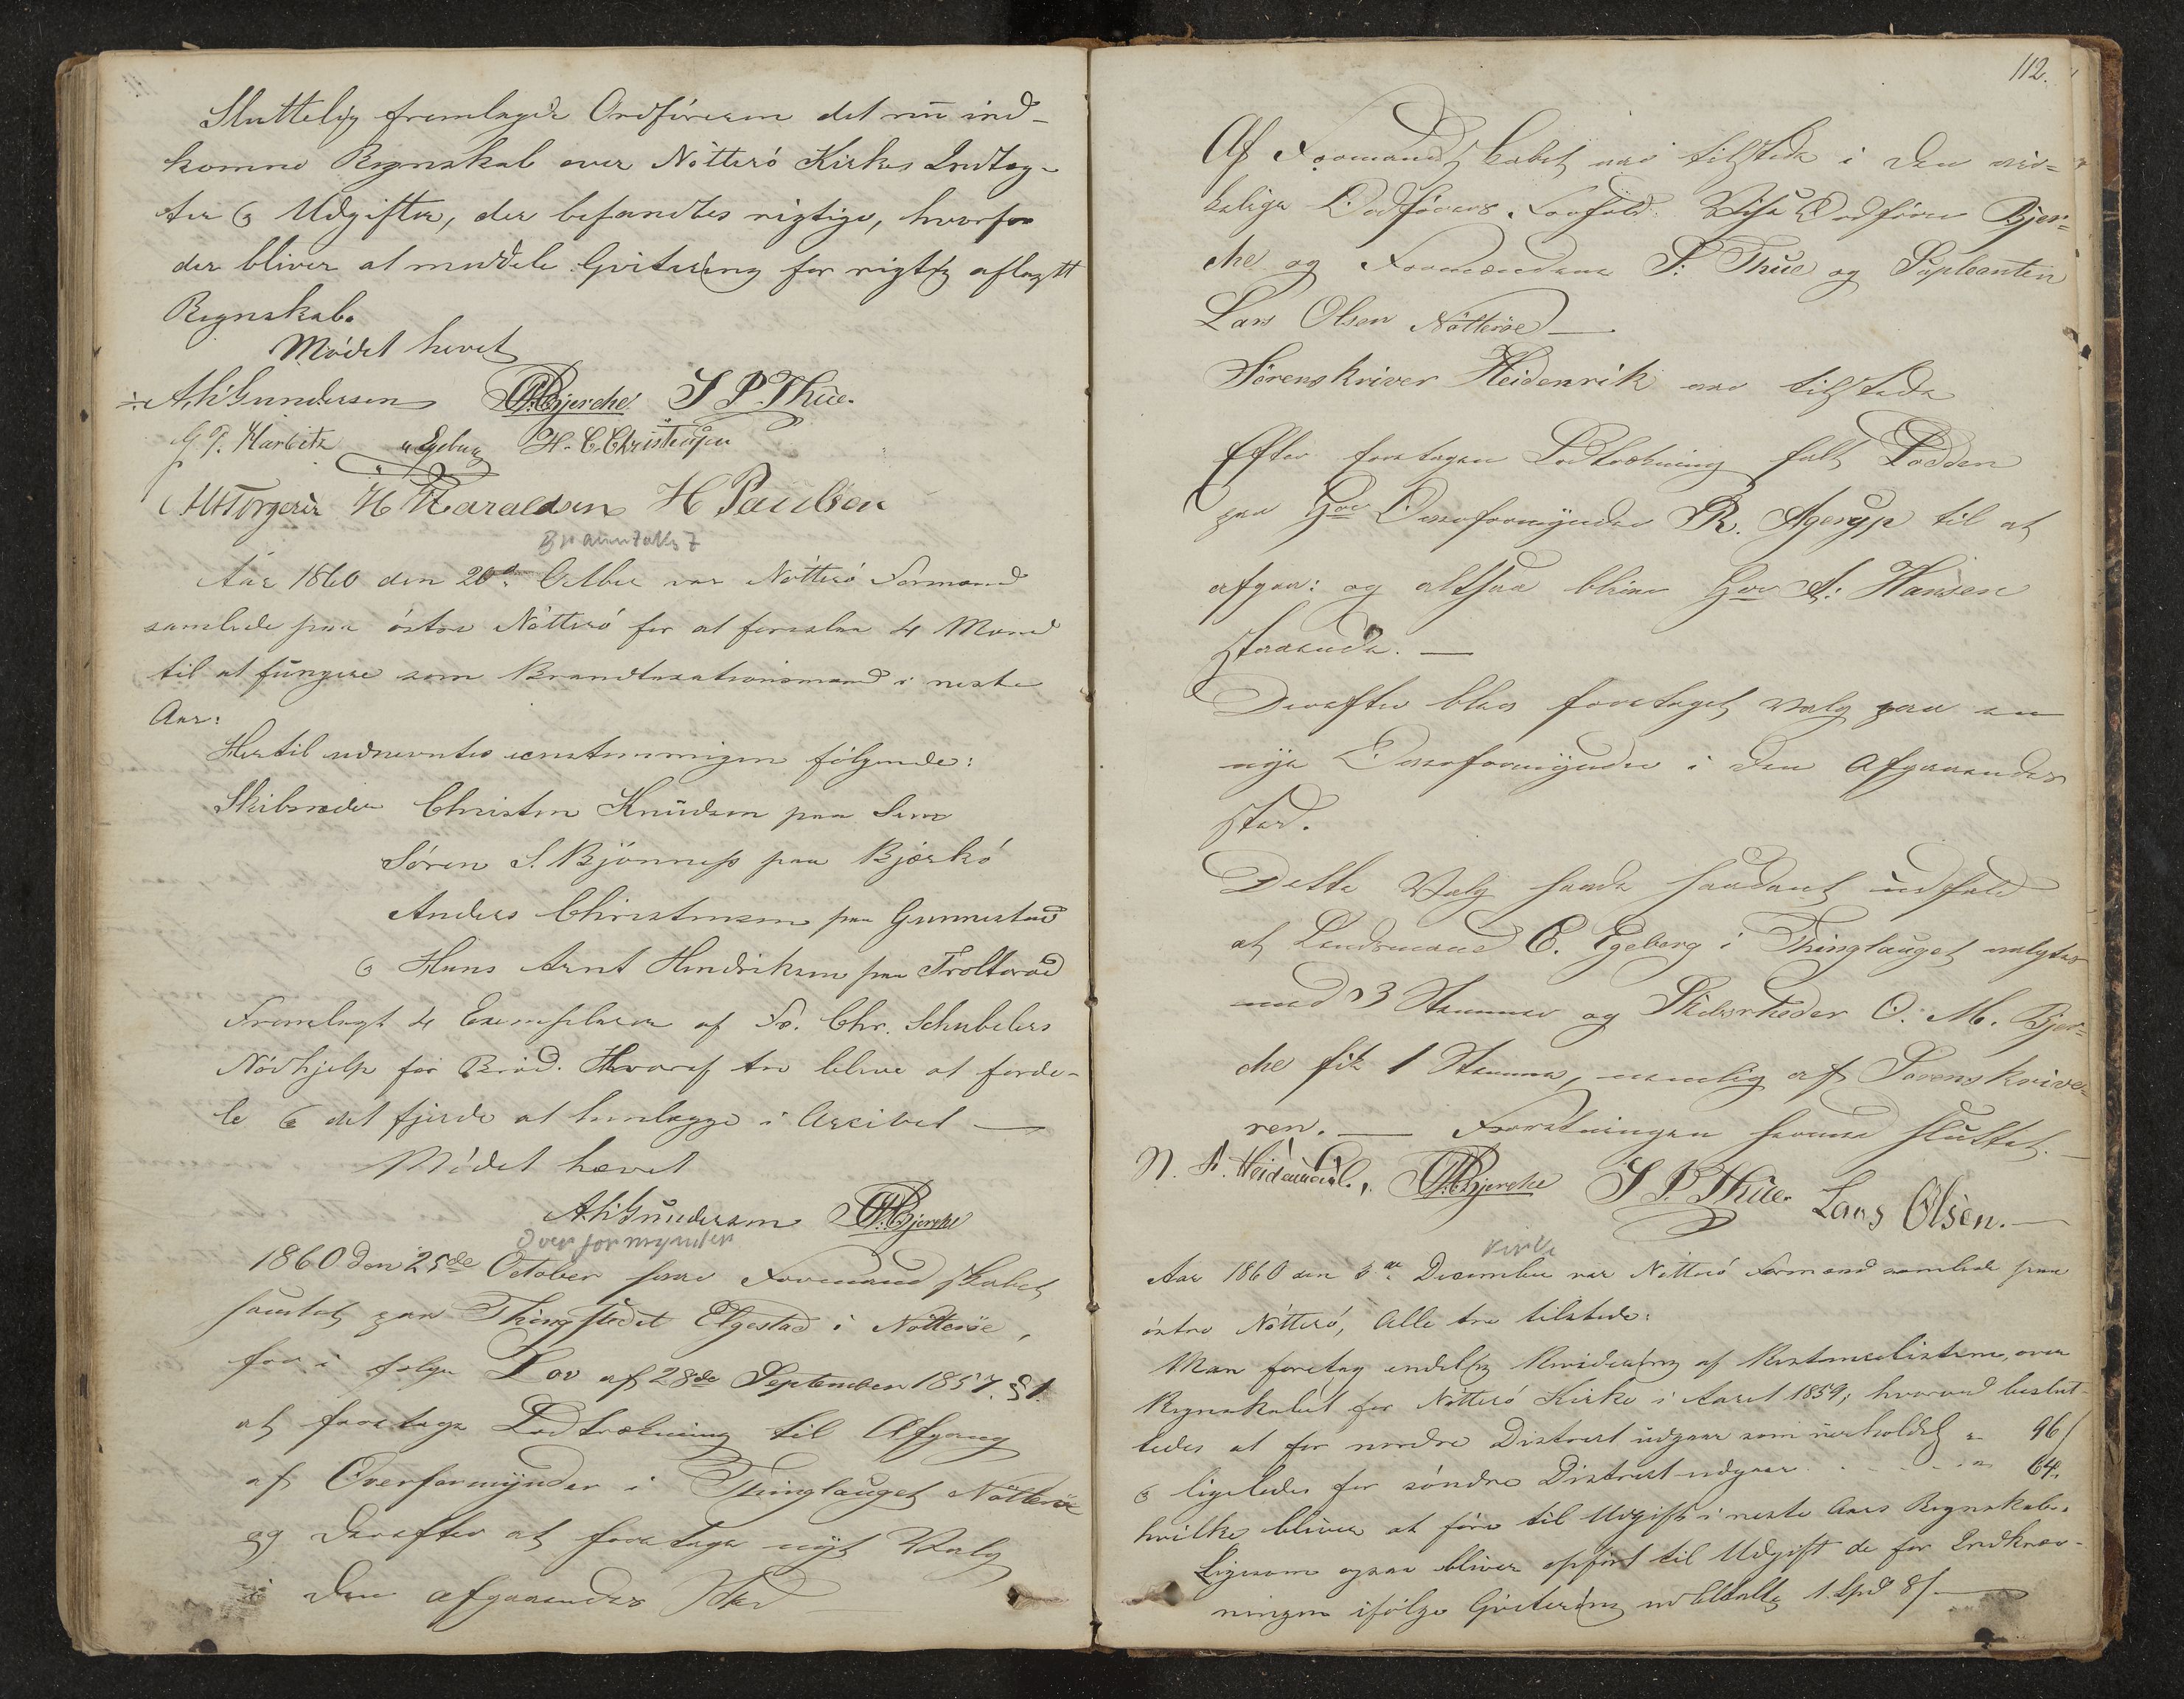 Sluttelig fremlagde Ordføreren det nu ind-
komne Regnskab over Nötterö Kirkes Indtæg-
ter og Udgifter, der befandtes rigtige, hvorfor
der bliver at meddele Qvitering for rigtig aflagt
Regnskab.
Mödet hævet
A. H. Gundersen O. M. Bjerche S P. Thue.
G. P. Harbitz Egeberg H. C. Christensen
H Haraldsen H Paulsen
Branntakst
Aar 1860 den 20de Octber var Nötterö Formand
samlede paa östre Nötterö for at foreslaa 4 Mænd
til at fungere som Brandtaxationsmænd i neste
Aar:
Hertil udnevntes eenstemmigen fölgende:
Skibsreder Christen Knudsen paa Sem
Sören S. Bjönness paa Bjerkö
Anders Christensen paa Gunnestad
og Hans Arnt Hendriksen paa Trolleröd
Fremlagt 4 Exemplarer af Fr. Chr. Schubelers
Nödhjelp for Bröd. Hvoraf tre blive at forde-
le og det fjerde at henlægge i Arcivet —
Mödet hævet
A. H. Gundersen O. M. Bjerche
Overformynder
1860 den 25de October var Formandskabet
samlet paa Thingstedet Elgestad i Nötteröe,
for i følge Lov af 28de September 1857. § 1.
at foretage Lodtrækning til Afgang
af Overformynder i Thinglauget Nötteröe
og derefter at foretage nyt Valg
i den afgaaendes Sted
112.
Af Formandskabet var tilstede i den vir-
kelige Ordførers Forfald: Vise Ordfører Bjer-
che og Formændene S: Thue og Supleanten
Lars Olsen Nötteröe —
Sörenskriver Heidenrik var tilstede
Efter foretagen Lodtrækning falt Lodden
paa Hrr Overformynder R. Agerup til at
afgaa: og altsaa bliver Hrr A: Hansen
staaende. —
Derefter blev foretaget Valg paa en
nye Overformynder i den Afgaaendes
Sted.
Dette Valg havde saadant udfald
at Lendsmand C. Egeberg i Thinglauget valgtes
med 3 Stemmer og Skibsrheder O. M. Bjer-
che fik 1 Stemme, nemlig af Sorenskrive-
ren. — Forretningen hermed sluttet. —
N. F. Heidenreich. O. M. Bjerche S P. Thue. Lars Olsen. —
Kirke
Aar 1860 den 3de December var Nötterö Formænd samlede paa
östre Nötterö, Alle tre tilstede:
Man foretog endelig Revidering af Restancelisten, over
Regnskabet for Nötterö Kirke i Aaret 1859, hvorved beslut-
tedes at for nordre Distrect udgaar som uerholdelig " 96 ſ
og ligeledes for söndre Distrect udgaar . . . . " 64.
hvilke bliver at före til Udgift i neste Aars Regnskab.
Ligesom ogsaa bliver opfört til Udgift de for Indkræv-
ningen ifölge Qvitering udbetalte 1. Spd 8 ſ —